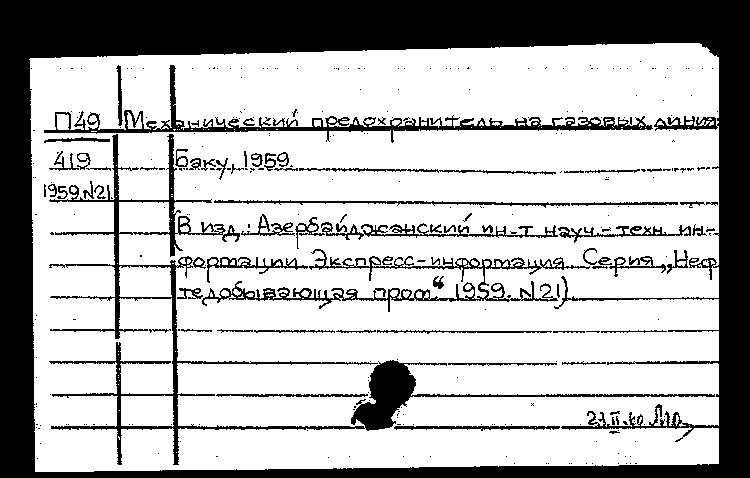 П49 Механический предохранитель на газовых линия
419 Баку, 1959.
1959.N21
(В изд.: Азербайджанский ин-т науч.-техн. ин-
формации. Экспресс-информация. Серия „Неф
тедобывающая пром“ 1959. N21)
23.II.60